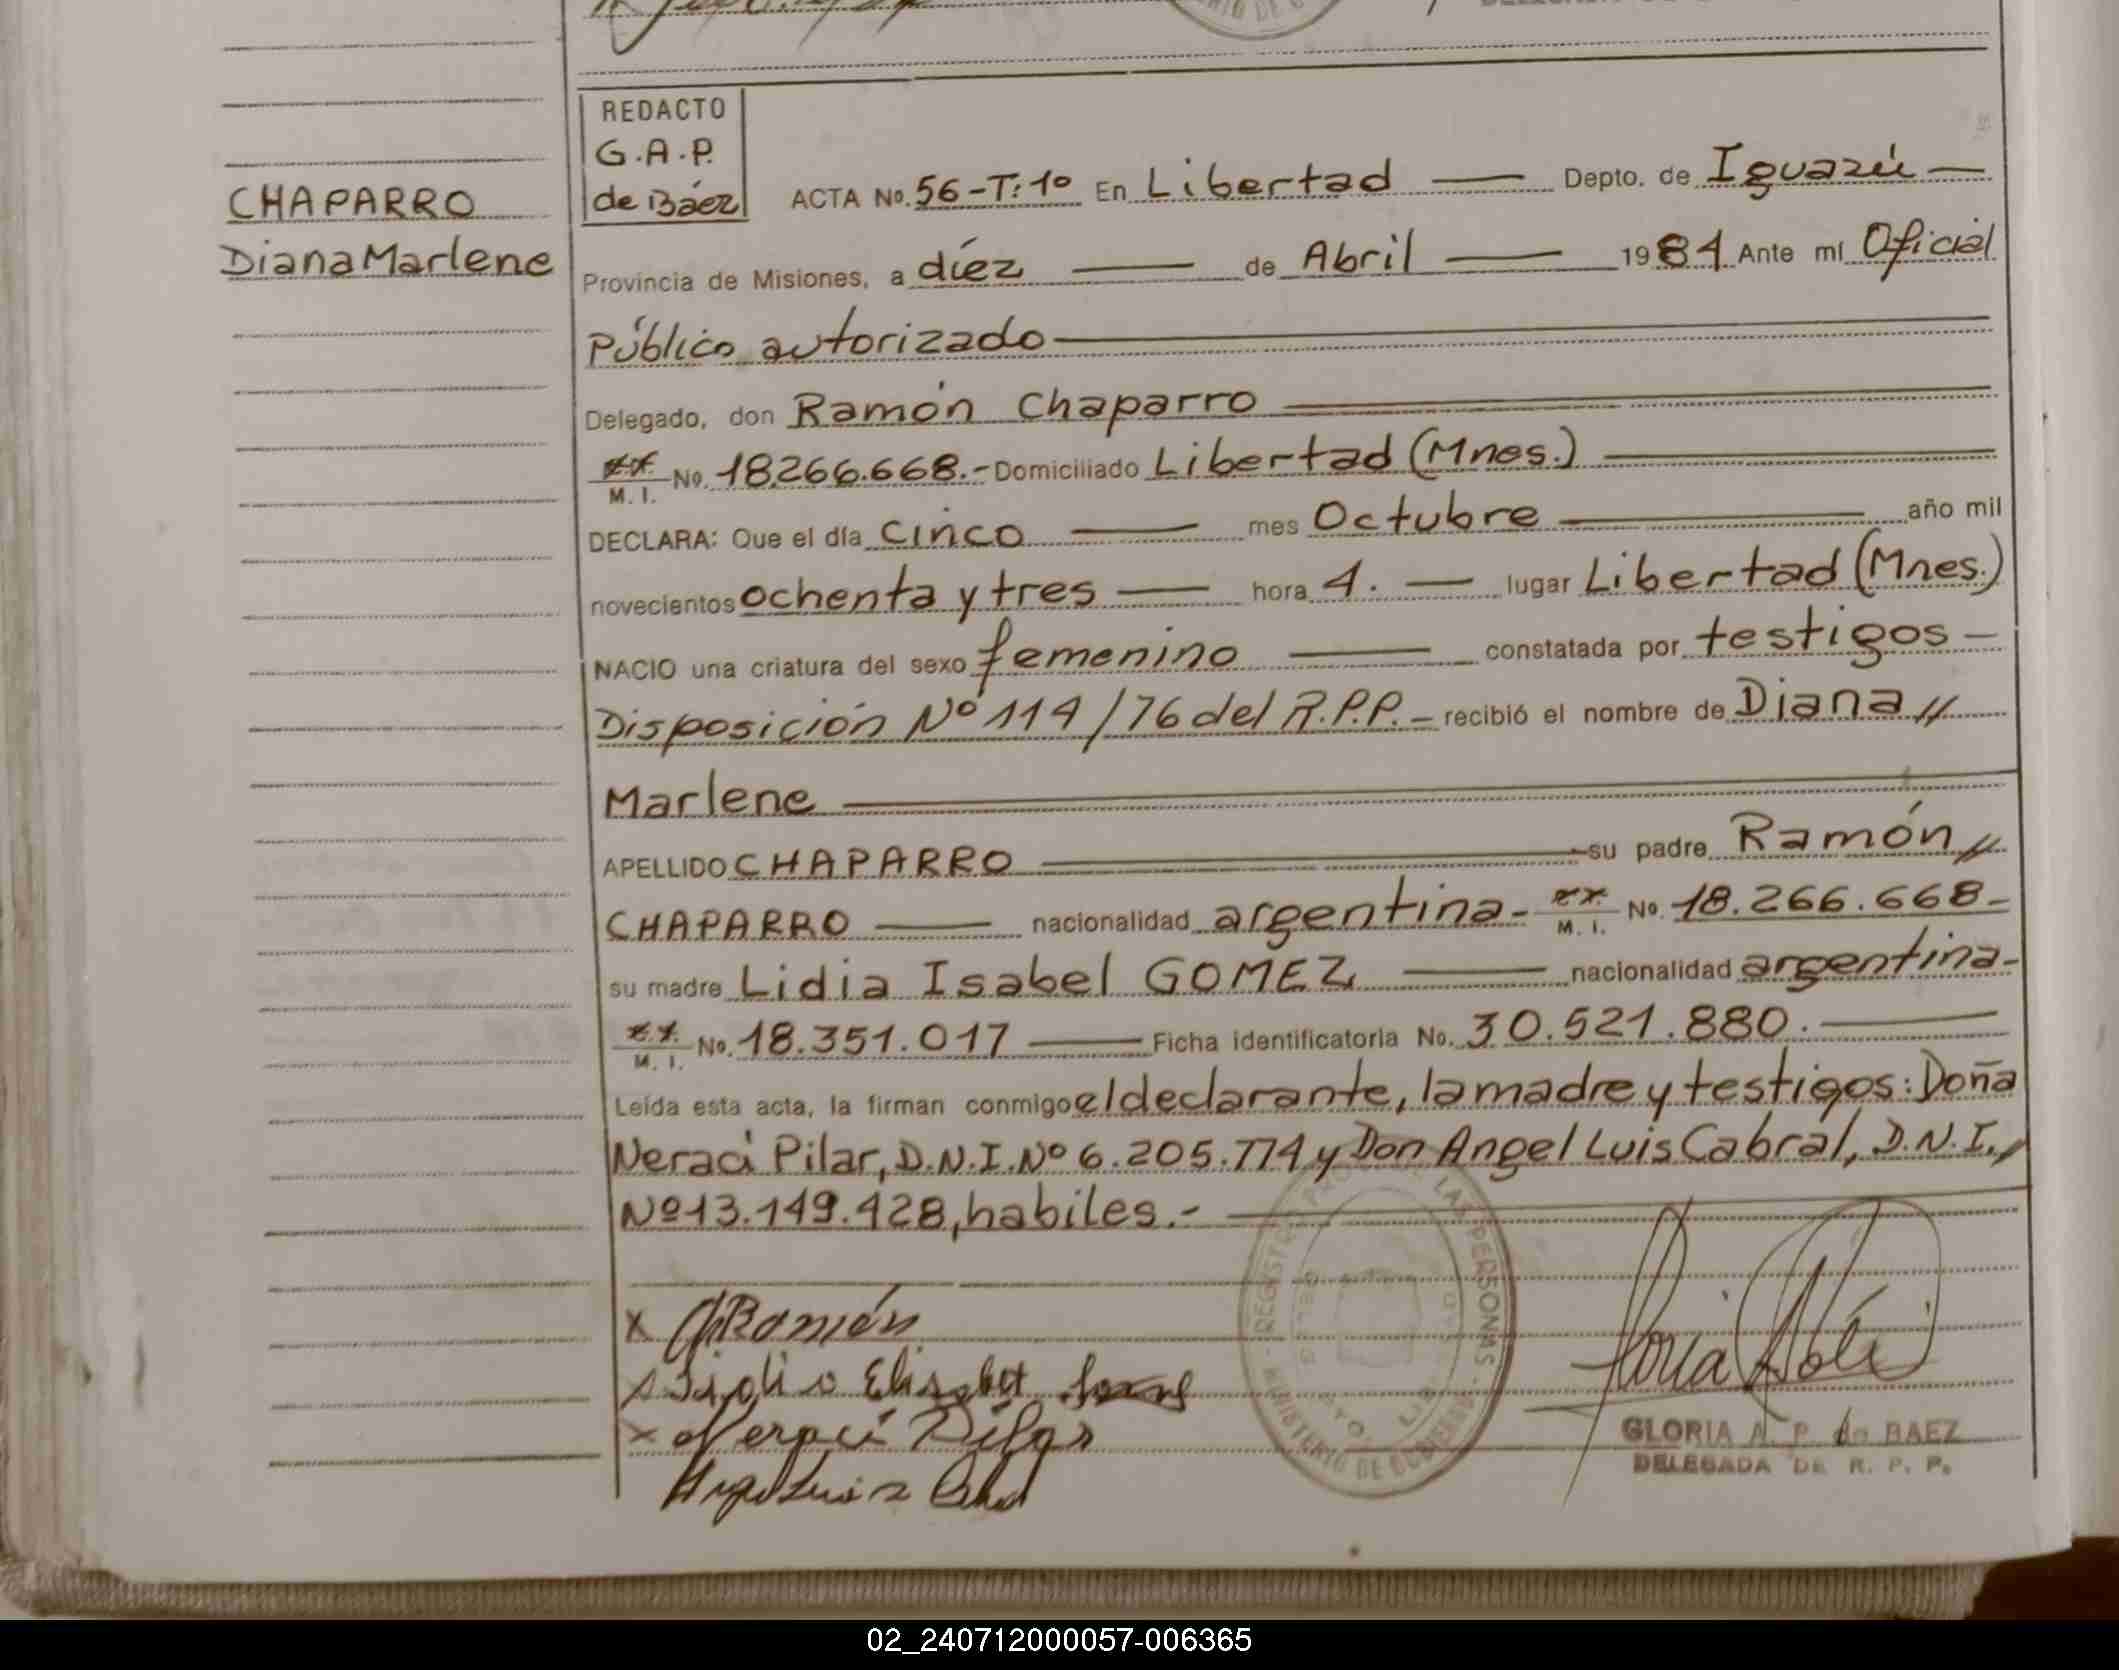 CHAPARRO
Diana Marlene
REDACTO
G.A.P.
de Báez
ACTA No. 56-T:1º En Libertad Depto. de Iguazú
Provincia de Misiones, a díez de Abril 1984 Ante mí Oficial
Público autorizado
Delegado, don Ramón Chaparro
M. I. No. 18.266.668.- Domiciliado Libertad (Mnes.)
DECLARA: Que el día cinco mes Octubre año mil
novecientos ochenta y tres hora 4. lugar Libertad (Mnes.)
NACIO una criatura del sexo femenino constatada por testigos
Disposición Nº 114/76 del R.P.P.- recibió el nombre de Diana //
Marlene
APELLIDO CHAPARRO su padre Ramón //
CHAPARRO nacionalidad argentina- M. I. No. 18.266.668-
su madre Lidia Isabel GOMEZ nacionalidad argentina-
M. I. No. 18.351.017 Ficha identificatoria No. 30.521.880.
Leída esta acta, la firman conmigo el declarante, la madre y testigos: Doña
Neraci Pilar, D.N.I. Nº 6.205.774 y Don Angel Luis Cabral, D.N.I. //
Nº 13.149.428, habiles.-
x Ramón
x Neraci Pilar
REGISTRO PROV. DE LAS PERSONAS - MINISTERIO DE GOBIERNO
GLORIA A. P. de BAEZ
DELEGADA DE R. P. P.
02_240712000057-006365